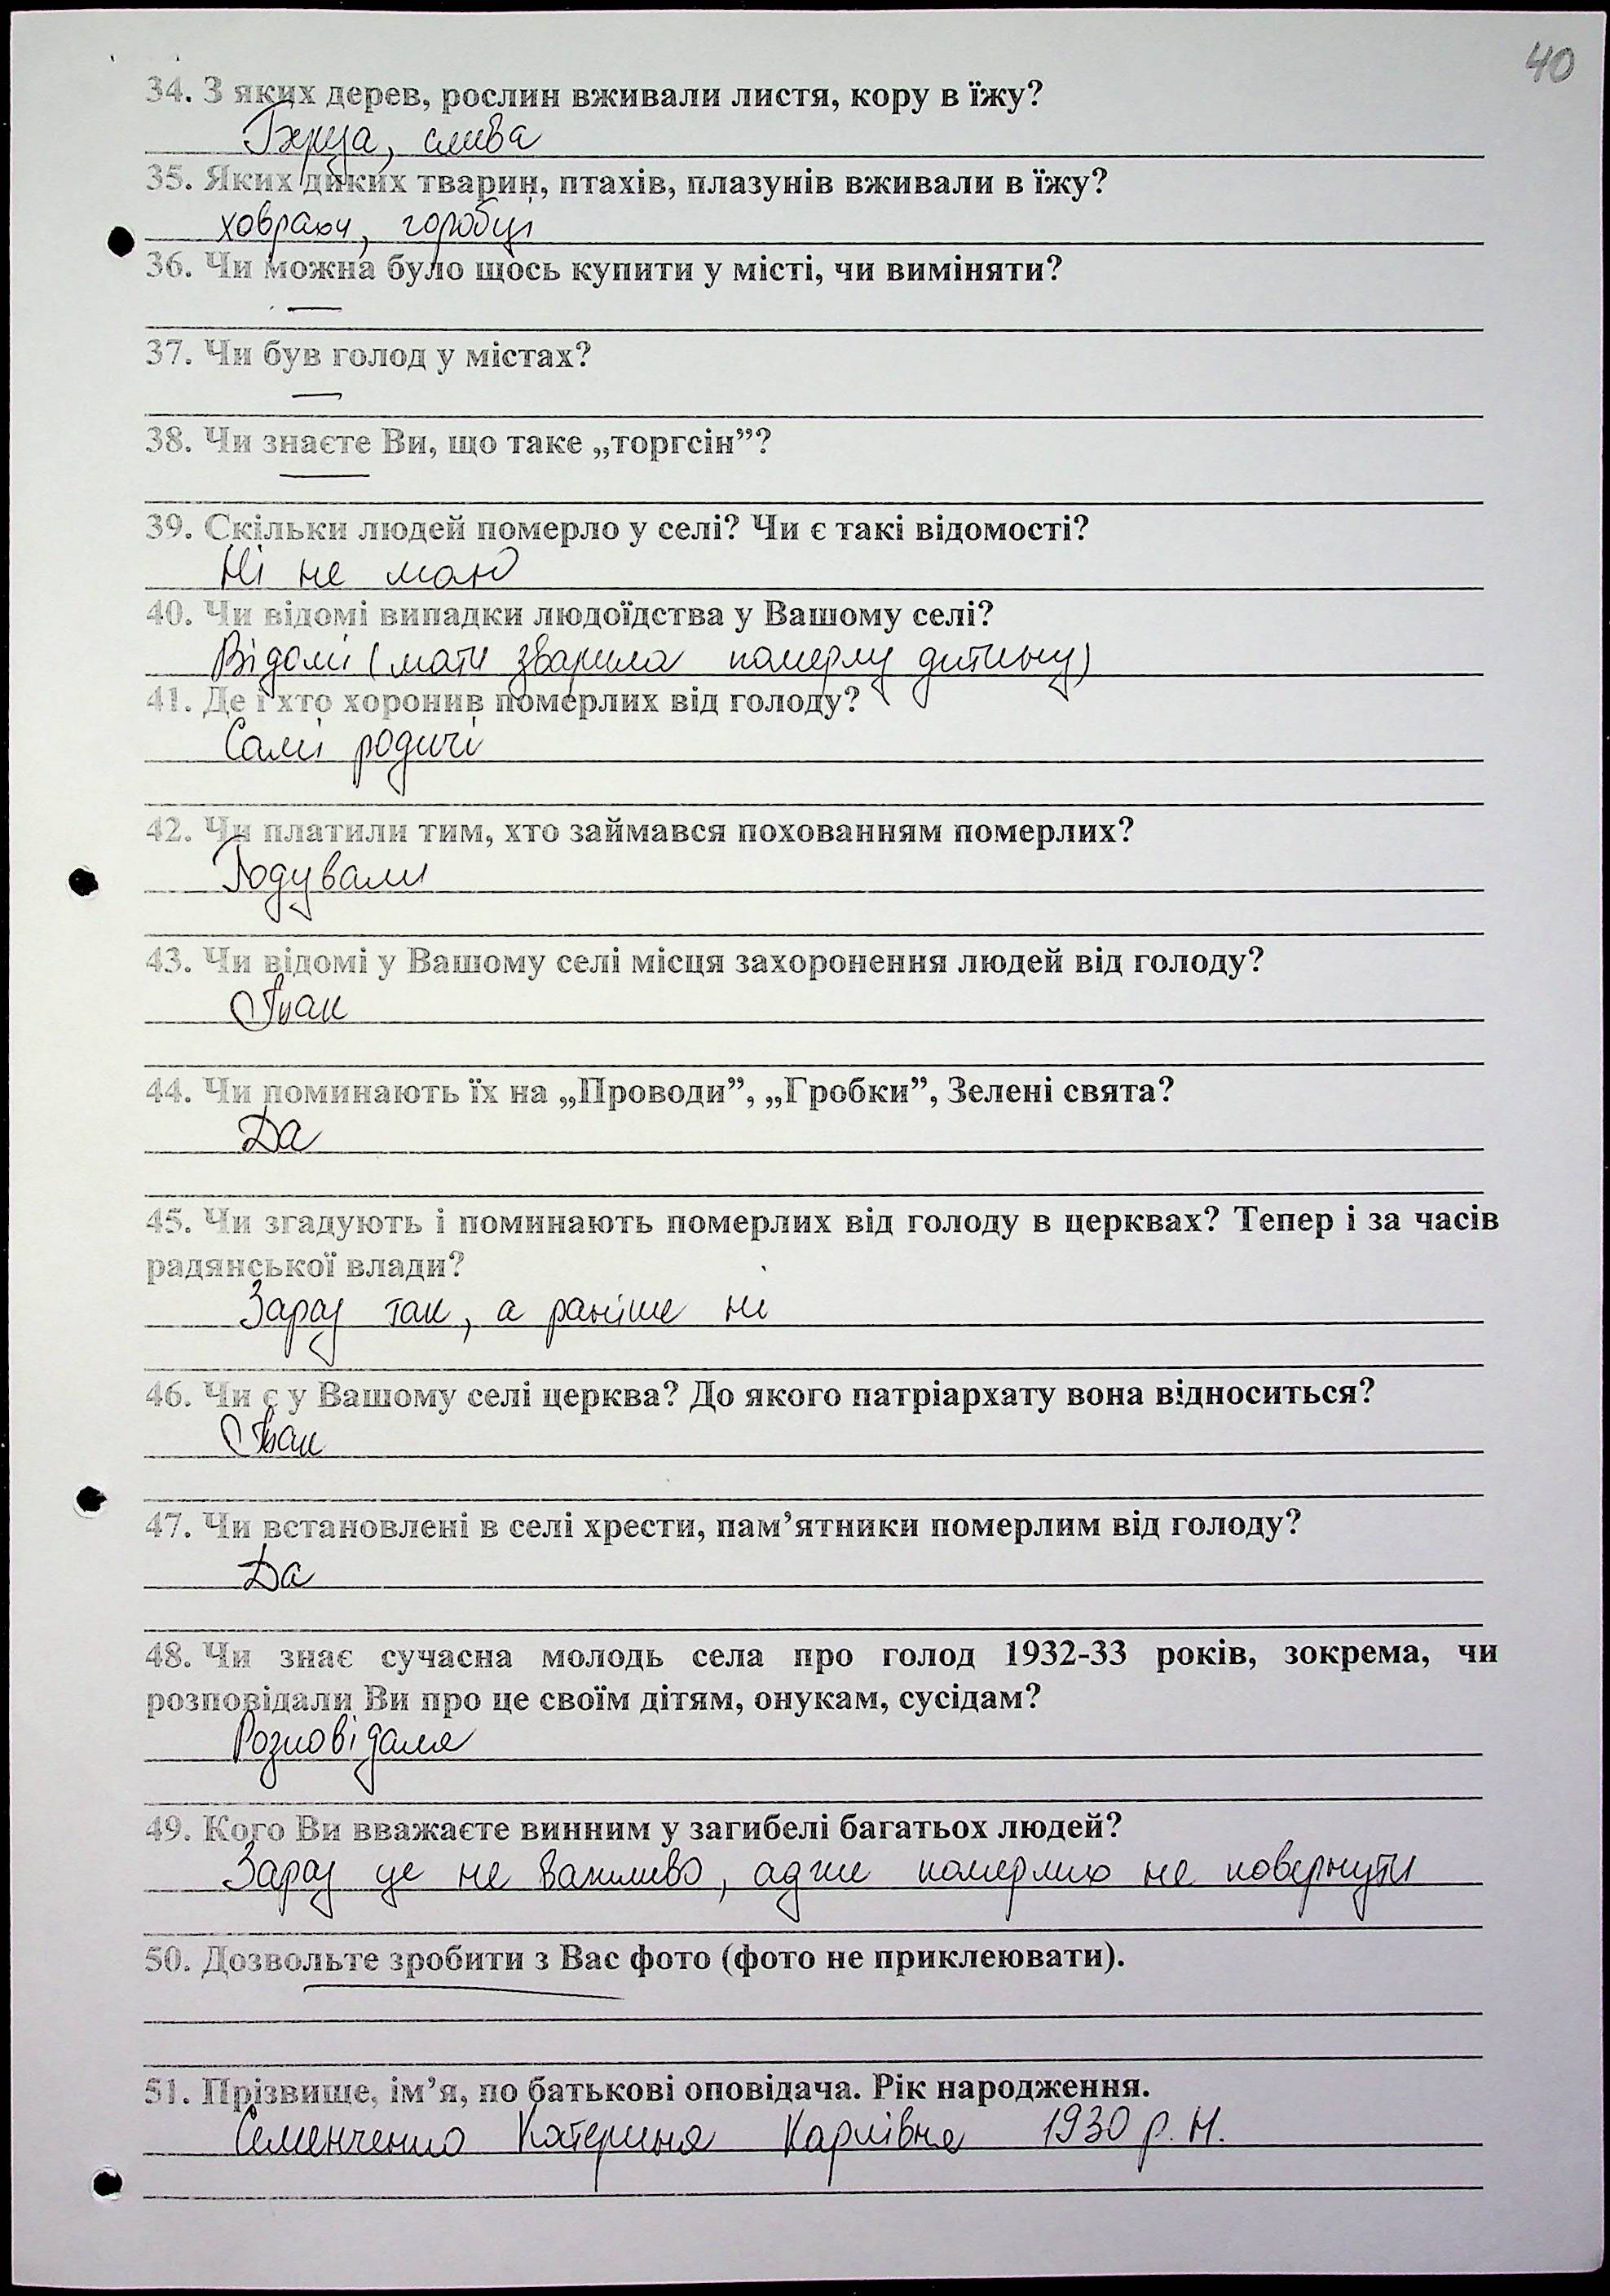 40
34. З яких дерев, рослин вживали листя, кору в їжу?
Груша, слива
35. Яких диких тварин, птахів, плазунів вживали в їжу?
ховрахи, горобці
36. Чи можна було щось купити у місті, чи виміняти?
—
37. Чи був голод у містах?
—
38. Чи знаєте Ви, що таке „торгсін”?
—
39. Скільки людей померло у селі? Чи є такі відомості?
Ні не маю
40. Чи відомі випадки людоїдства у Вашому селі?
Відомі (мати зварила померлу дитину)
41. Де і хто хоронив померлих від голоду?
Самі родичі
42. Чи платили тим, хто займався похованням померлих?
Годували
43. Чи відомі у Вашому селі місця захоронення людей від голоду?
Так
44. Чи поминають їх на „Проводи”, „Гробки”, Зелені свята?
Да
45. Чи згадують і поминають померлих від голоду в церквах? Тепер і за часів
радянської влади?
Зараз так, а раніше ні
46. Чи є у Вашому селі церква? До якого патріархату вона відноситься?
Так
47. Чи встановлені в селі хрести, пам’ятники померлим від голоду?
Да
48. Чи знає сучасна молодь села про голод 1932-33 років, зокрема, чи
розповідали Ви про це своїм дітям, онукам, сусідам?
Розповідала
49. Кого Ви вважаєте винним у загибелі багатьох людей?
Зараз це не важливо, адже померлих не повернути
50. Дозвольте зробити з Вас фото (фото не приклеювати).
—
51. Прізвище, ім’я, по батькові оповідача. Рік народження.
Семенченко Катерина Карлівна 1930 р. н.